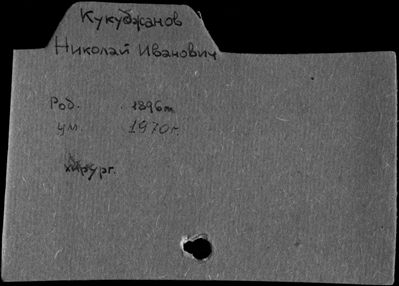 Кукуджанов
Николай Иванович
Род. 1896г.
ум. 1970г.
хирург.